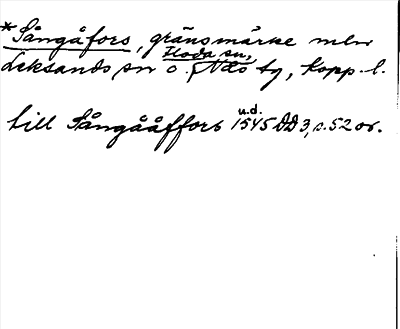 *Sångåfors, gränsmärke mlw
Floda sn,
Leksands sn o. Nås tg, Kopp. l.
u.d.
till Sångååffors 1545 DD 3, s. 52 or.